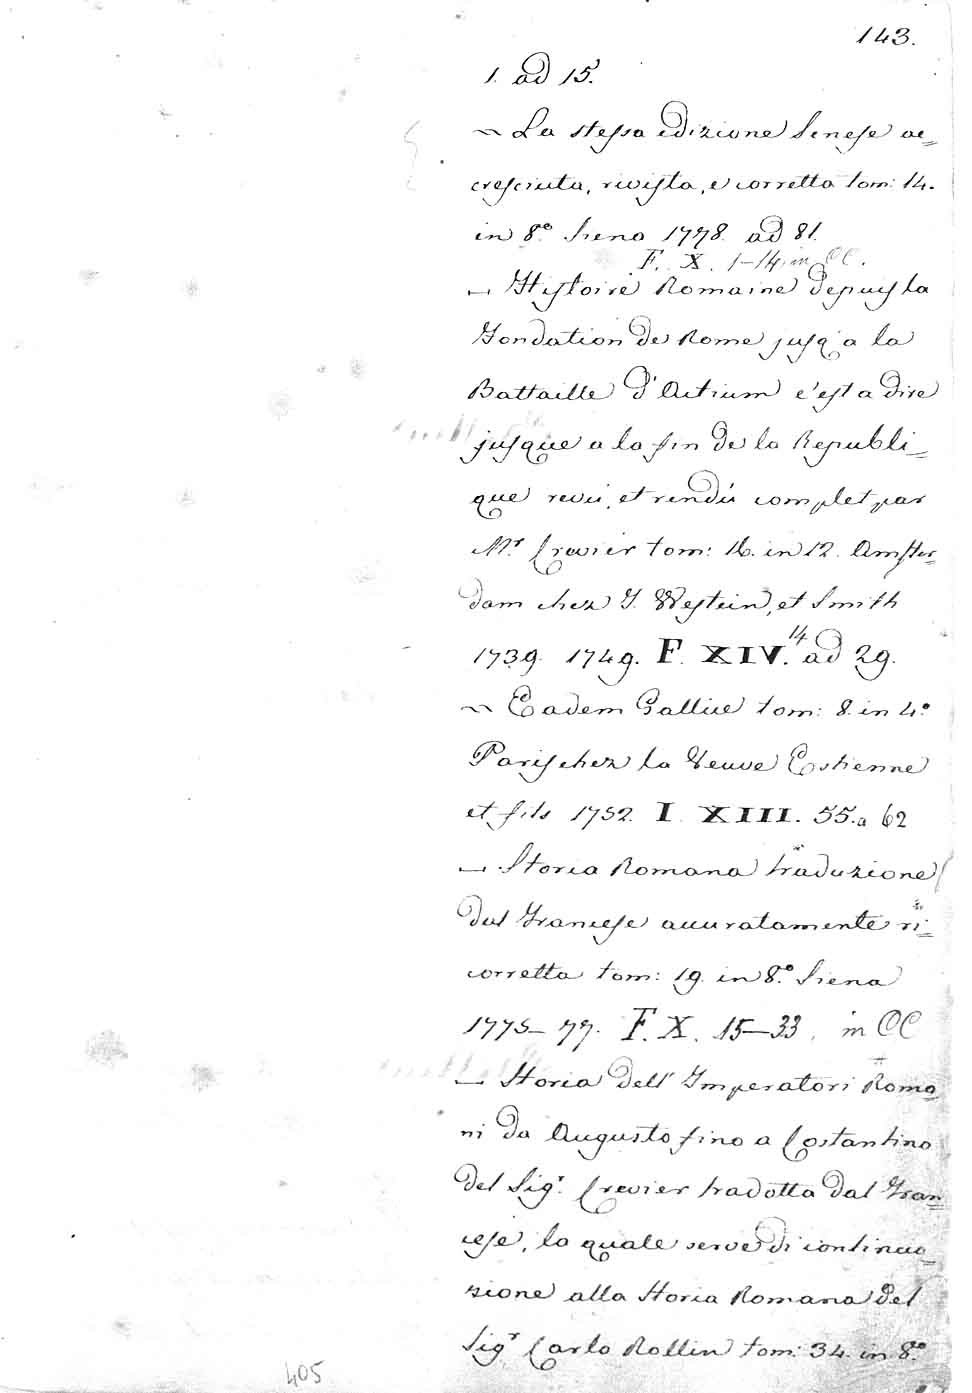 143.
1. ad 15.
~ La stessa edizione Senese ac=
cresciuta, rivista, e corretta tom: 14.
in 8.° Siena 1778. ad 81.
F. X. 1-14. in CC.
_ Histoire Romaine depuis la
Fondation de Rome jusq'a la
Battaille d'Actium c'est a dire
jusque a la fin de la Republi=
que revù, et rendù complet par
M.r Crevier tom: 16. in 12. Amster=
dam chez J. Westein, et Smith
1739. 1749. F. XIV. 14 ad 29.
~ Eadem Gallice tom: 8. in 4.°
Paris chez la Veuve Estienne
et fils 1752. I. XIII. 55. a 62
_ Storia Romana traduzione
dal Francese accuratamente ri=
corretta tom: 19. in 8.° Siena
1775-77. F. X. 15-33. in CC
_ Storia dell' Imperatori Roma=
ni da Augusto fino a Costantino
del Sig.r Crevier tradotta dal Fran=
cese, la quale serve di continua=
zione alla Storia Romana del
Sig.r Carlo Rollin tom: 34. in 8.°
405